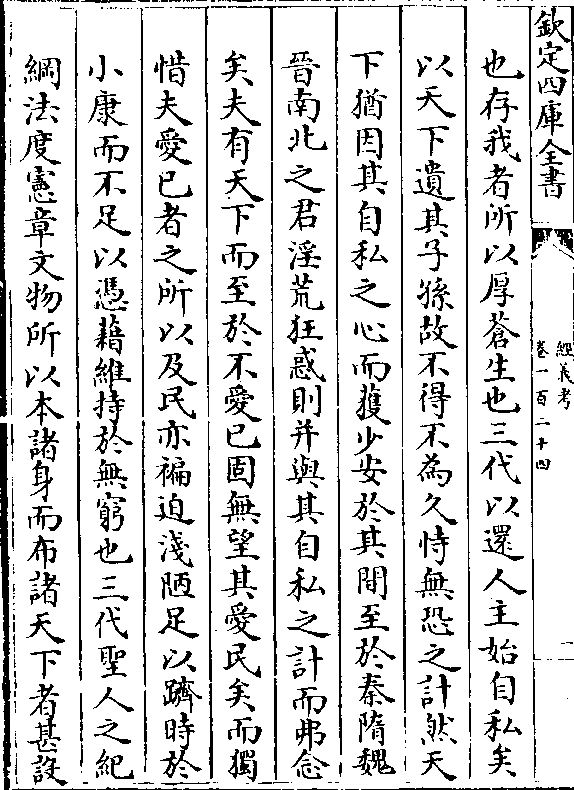 欽定四庫全書
經義考
卷一百二十四
二
也存我者所以厚蒼生也三代以還人主始自私矣
以天下遺其子孫故不得不為久恃無恐之計然天
下猶因其自私之心而獲少安於其間至於秦隋魏
晉南北之君淫荒狂惑則并與其自私之計而弗念
矣夫有天下而至於不愛已固無望其愛民矣而獨
惜夫愛已者之所以及民亦褊迫淺陋足以躋時於
小康而不足以憑藉維持於無窮也三代聖人之紀
綱法度憲章文物所以本諸身而布諸天下者甚設